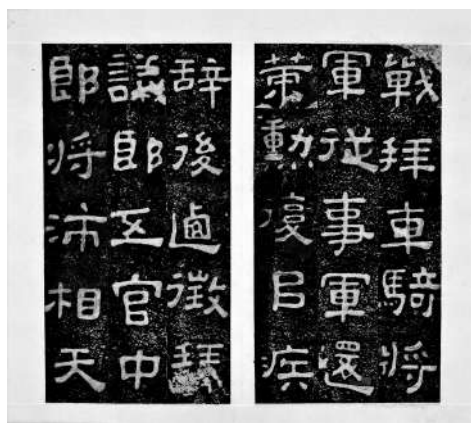 戰拜車騎將
軍從事軍還
策勳復㠯疾
辭後逌徵拜
議郎五官中
郎將沛相天